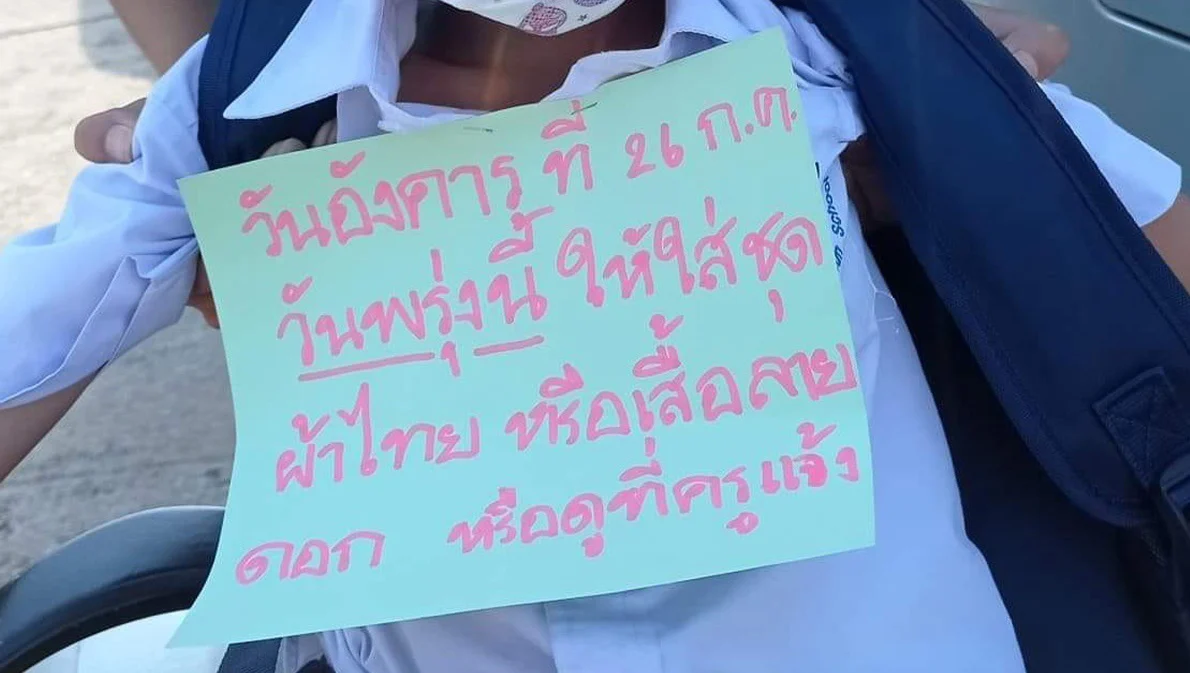 วันอังคาร ที่ 26 ก.ค.
วันพรุ่งนี้ ให้ใส่ชุด
ผ้าไทย หรือเสื้อลาย
ดอก หรือดูที่ครูแจ้ง